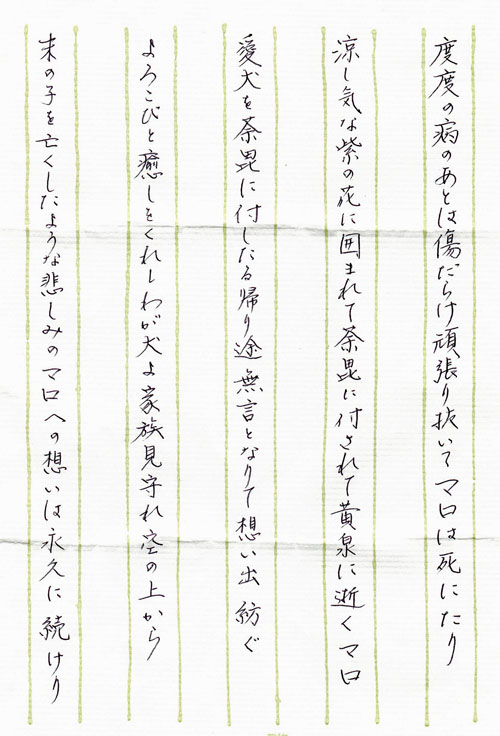 度度の病のあとは傷だらけ頑張り抜いてマロは死にたり
涼し気な紫の花に囲まれて荼毘に付されて黄泉に逝くマロ
愛犬を荼毘に付したる帰り途無言となりて想い出紡ぐ
よろこびと癒しをくれしわが犬よ家族見守れ空の上から
末の子を亡くしたような悲しみのマロへの想いは永久に続けり